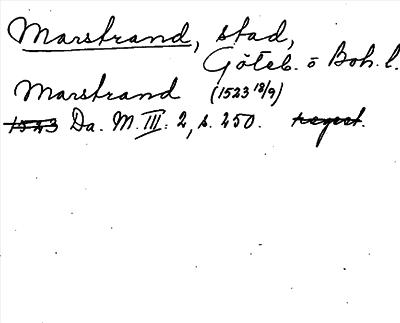 Marstrand, stad,
Göteb. o Boh. l.
Marstrand (1523 18/9)
1523 Da. M. III: 2, s. 250. regest.